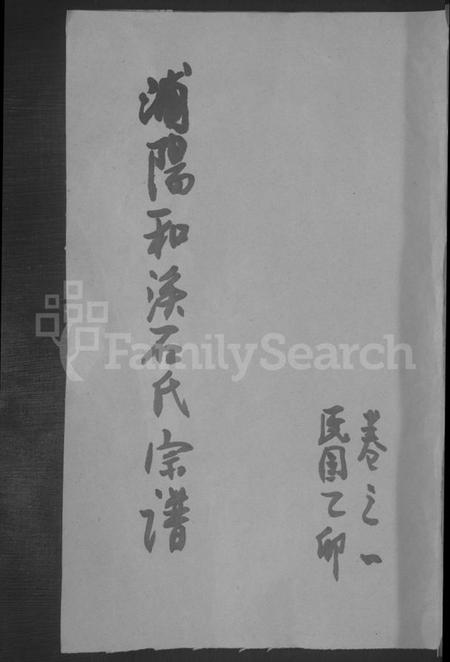 卷之一
民国乙卯
浦陽和溪石氏宗谱
FamilySearch